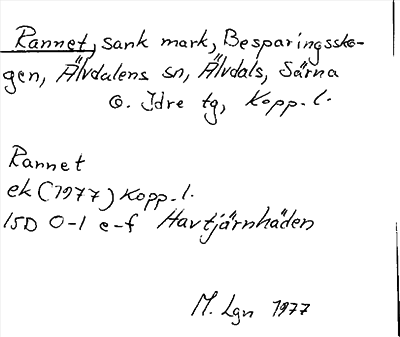 Rannet, sank mark, Besparingssko-
gen, Älvdalens sn, Älvdals, Särna
o. Idre tg, Kopp. l.
Rannet
ek (1977) Kopp. l.
15D 0-1 e-f Havtjärnhäden
M. Lgn 1977